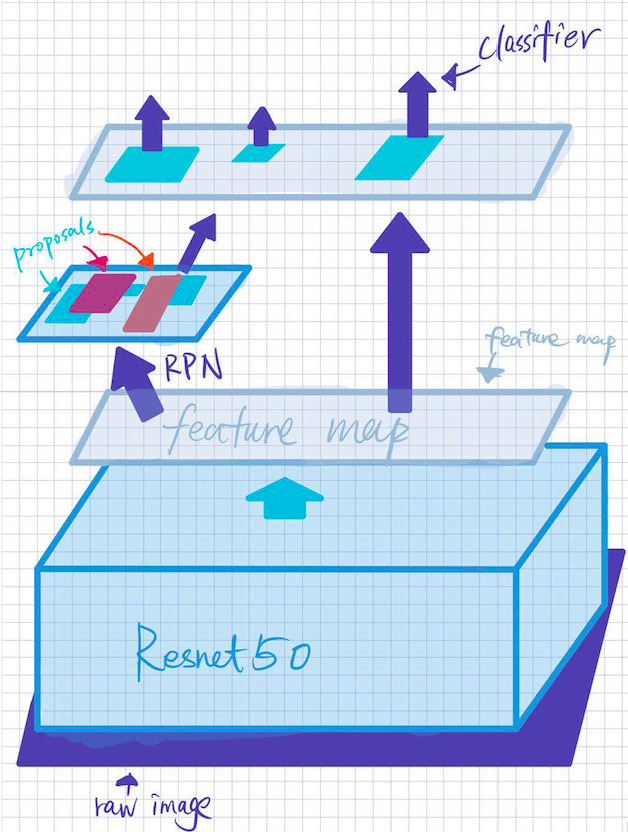 classifier
proposals
RPN
feature map
feature map
Resnet50
raw image